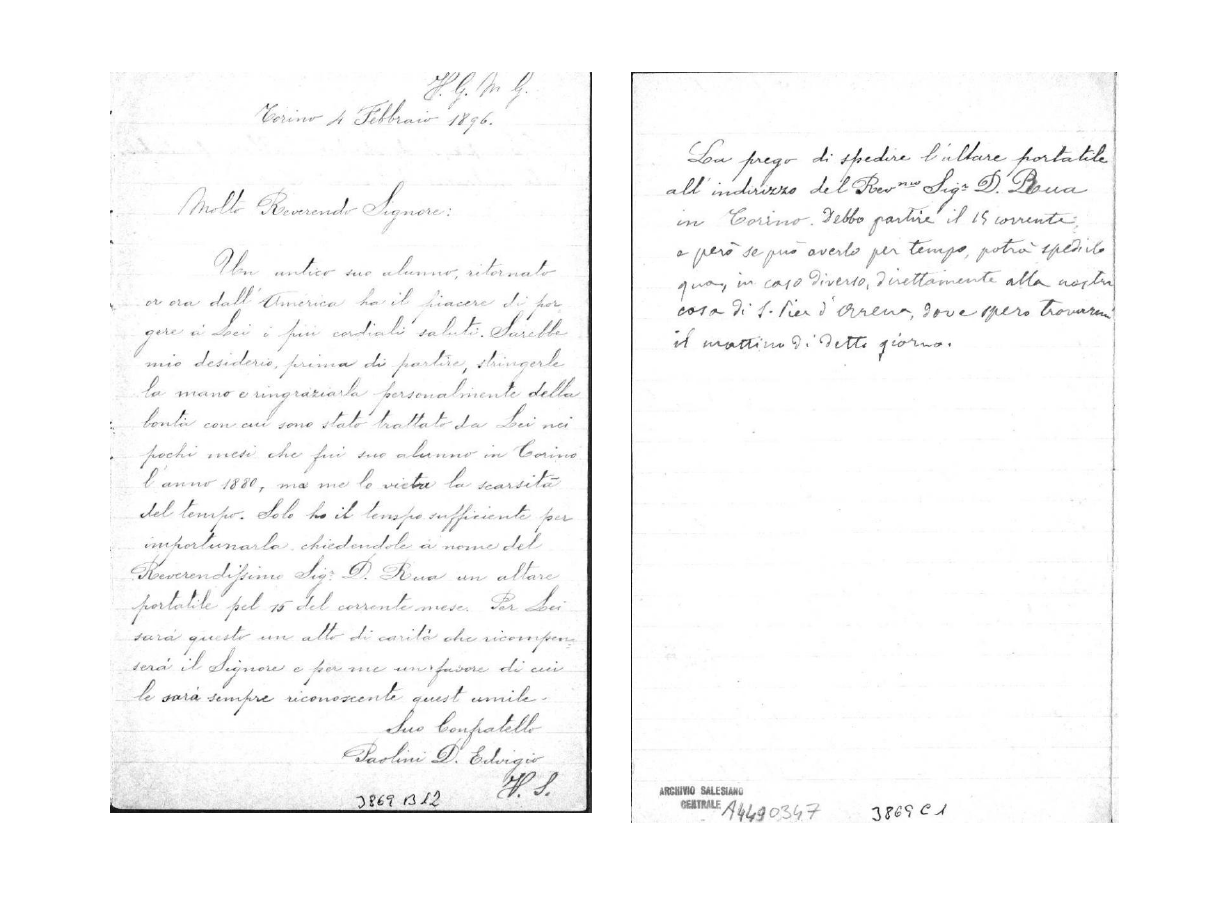 V. G. M. G.
Torino 4 Febbraio 1896.
Molto Reverendo Signore:
Un antico suo alunno, ritornato
or ora dall'America ha il piacere di por
gere á Lei i piú cordiali saluti. Sarebbe
mio desiderio, prima di partire, stringerle
la mano e ringraziarla personalmente della
bontá con cui sono stato trattato da Lei nei
pochi mesi che fui suo alunno in Torino
l'anno 1880, ma me lo vieta la scarsitá
del tempo. Solo ho il tempo sufficiente per
importunarla chiedendole á nome del
Reverendissimo Sigr. D. Rua un altare
portatile pel 15 del corrente mese. Per Lei
sará questo un atto di caritá che ricompen=
serà il Signore e per me un favore di cui
le sará sempre riconoscente quest umile
Suo Confratello
Paolini D. Edvigio
V. S.
3869 B 12
La prego di spedire l'altare portatile
all'indirizzo del Revmo Sigr D. Rua
in Torino. Debbo partire il 15 corrente;
e però se può averlo per tempo, potrà spedirlo
qua, in caso diverso, direttamente alla nostra
casa di S. Pier d'Arena, dove spero trovarmi
il mattino di detto giorno.
ARCHIVIO SALESIANO
CENTRALE A4490347
3869 C 1